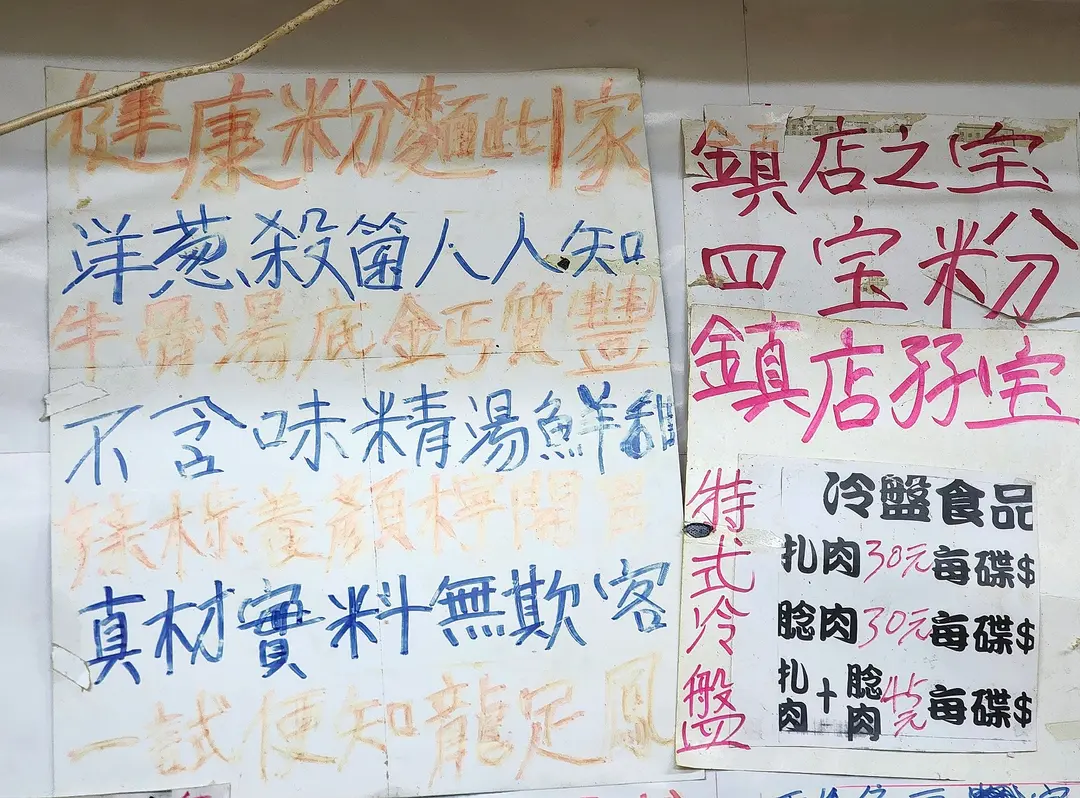 健康粉麵此家
洋葱殺菌人人知
牛骨湯底鈣質豐
不含味精湯鮮甜
養顏
真材實料無欺客
一試便知龍足鳳
鎮店之宝
四宝粉
鎮店孖宝
特式冷盤
冷盤食品
扎肉30元每碟$
腍肉30元每碟$
扎肉+腍肉45元每碟$